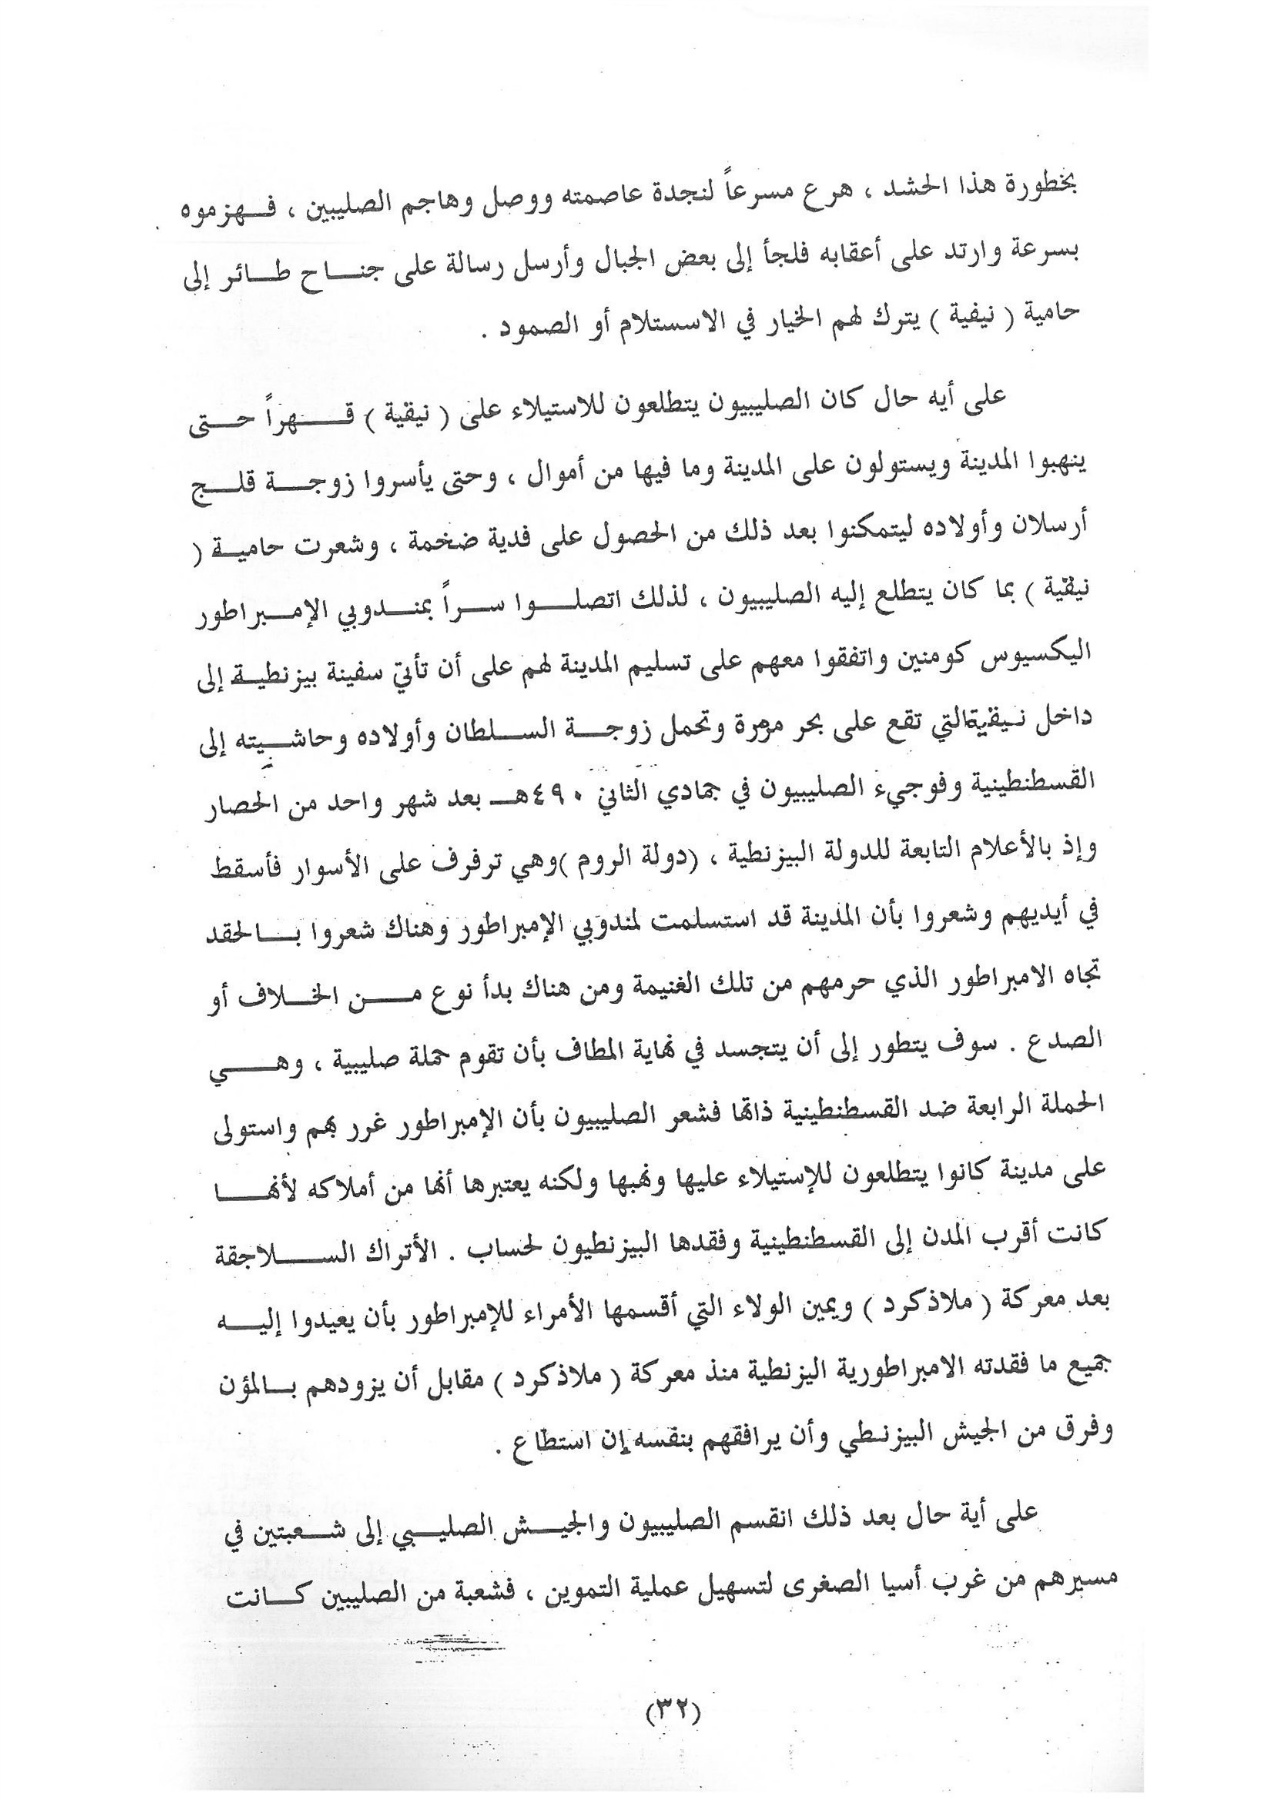 بخطورة هذا الحشد ، هرع مسرعاً لنجدة عاصمته ووصل وهاجم الصليبين ، فـهزموه
بسرعة وارتد على أعقابه فلجأ إلى بعض الجبال وأرسل رسالة على جناح طائر إلى
حامية ( نيفية ) يترك لهم الخيار في الاسستلام أو الصمود .
على أيه حال كان الصليبيون يتطلعون للاستيلاء على ( نيقية ) قهراً حتى
ينهبوا المدينة ويستولون على المدينة وما فيها من أموال ، وحتى يأسروا زوجة قلج
أرسلان وأولاده ليتمكنوا بعد ذلك من الحصول على فدية ضخمة ، وشعرت حامية (
نيقية ) بما كان يتطلع إليه الصليبيون ، لذلك اتصلوا سراً بمندوبي الإمبراطور
اليكسيوس كومنين واتفقوا معهم على تسليم المدينة لهم على أن تأتي سفينة بيزنطية إلى
داخل نيقيةالتي تقع على بحر مرمرة وتحمل زوجة السلطان وأولاده وحاشيته إلى
القسطنطينية وفوجيء الصليبيون في جمادي الثاني ٤٩٠هـ بعد شهر واحد من الحصار
وإذ بالأعلام التابعة للدولة البيزنطية ، (دولة الروم )وهي ترفرف على الأسوار فأسقط
في أيديهم وشعروا بأن المدينة قد استسلمت لمندوبي الإمبراطور وهناك شعروا بالحقد
تجاه الامبراطور الذي حرمهم من تلك الغنيمة ومن هناك بدأ نوع من الخلاف أو
الصدع . سوف يتطور إلى أن يتجسد في نهاية المطاف بأن تقوم حملة صليبية ، وهي
الحملة الرابعة ضد القسطنطينية ذاتها فشعر الصليبيون بأن الإمبراطور غرر بهم واستولى
على مدينة كانوا يتطلعون للإستيلاء عليها ونهبها ولكنه يعتبرها أنها من أملاكه لأنها
كانت أقرب المدن إلى القسطنطينية وفقدها البيزنطيون لحساب . الأتراك السلاجقة
بعد معركة ( ملاذكرد ) ويمين الولاء التي أقسمها الأمراء للإمبراطور بأن يعيدوا إليه
جميع ما فقدته الامبراطورية اليزنطية منذ معركة ( ملاذكرد ) مقابل أن يزودهم بالمؤن
وفرق من الجيش البيزنطي وأن يرافقهم بنفسه إن استطاع .
على أية حال بعد ذلك انقسم الصليبيون والجيش الصليبي إلى شعبتين في
مسيرهم من غرب أسيا الصغرى لتسهيل عملية التموين ، فشعبة من الصليبين كانت
(٣٢)